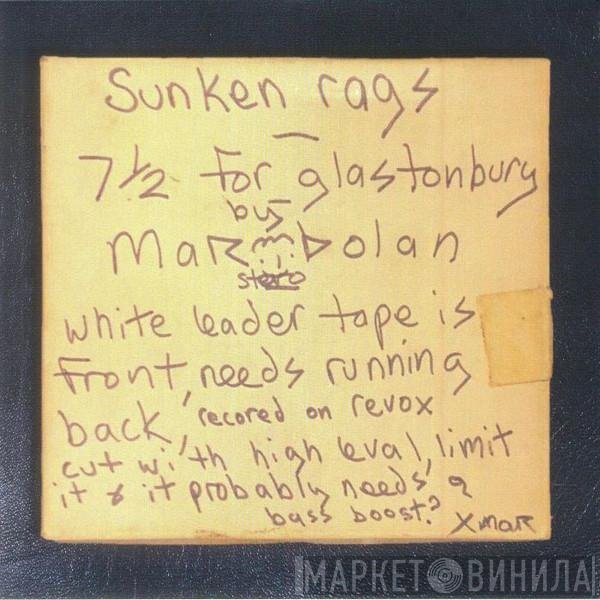 Sunken rags
—
7 1/2 for glastonbury
by
Mar Bolan
stero
white leader tape is
front, needs running
back, recored on revox
cut with high leval, limit
it & it probably needs a
bass boost? X mar
МАРКЕТ ВИНИЛА